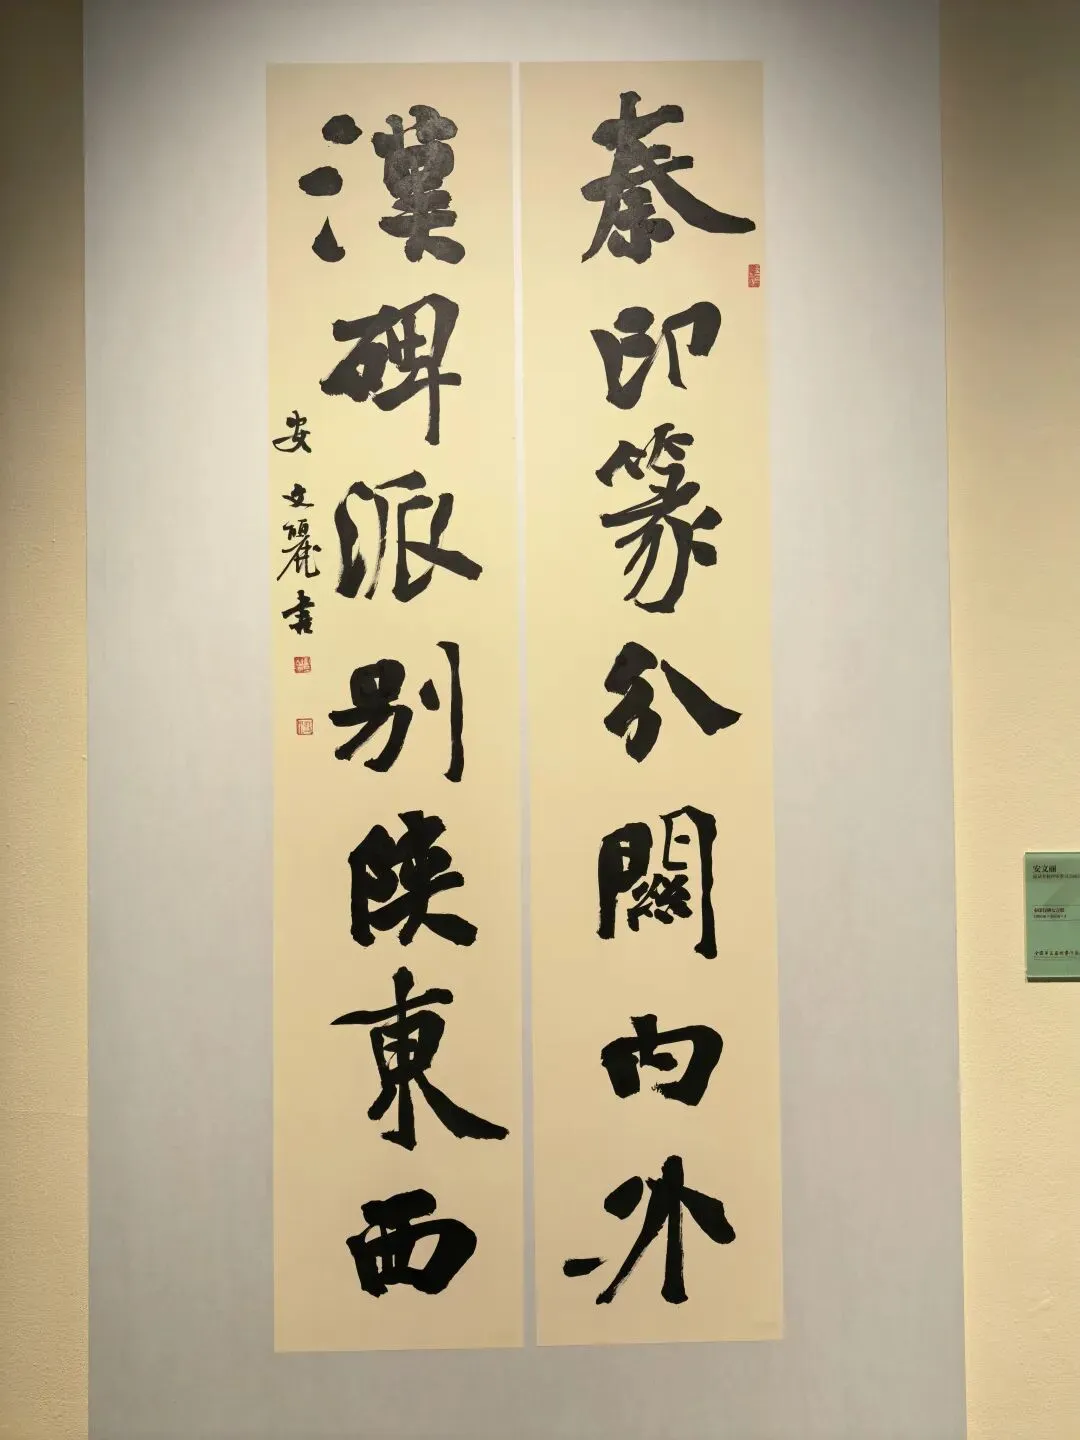 秦印篆分關内外
漢碑派别陝東西
安文麗書
安文丽